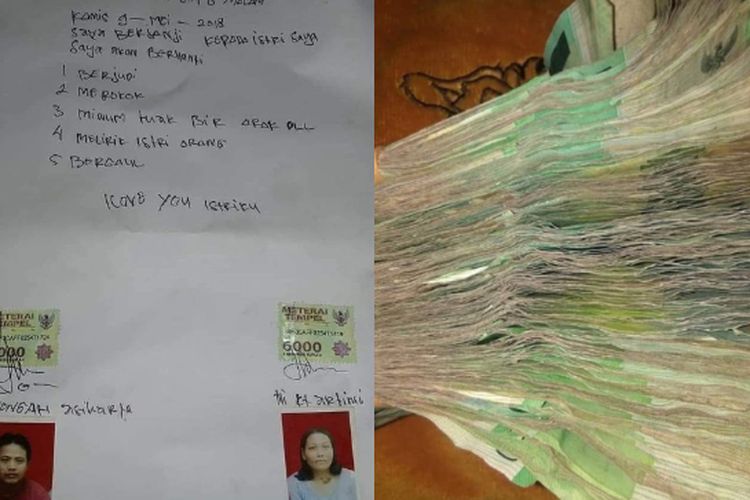 Kamis 9 - Mei - 2018
Saya BERJANJI KEPADA istri Saya
Saya akan BERHANTI
1 BERJUDI
2 MEROKOK
3 minum tuak BiR ARAK DLL
4 MELIRIK istri ORANG
5 BERGAUL
LOVE YOU istriku
METERAI
TEMPEL
6000
METERAI
TEMPEL
6000